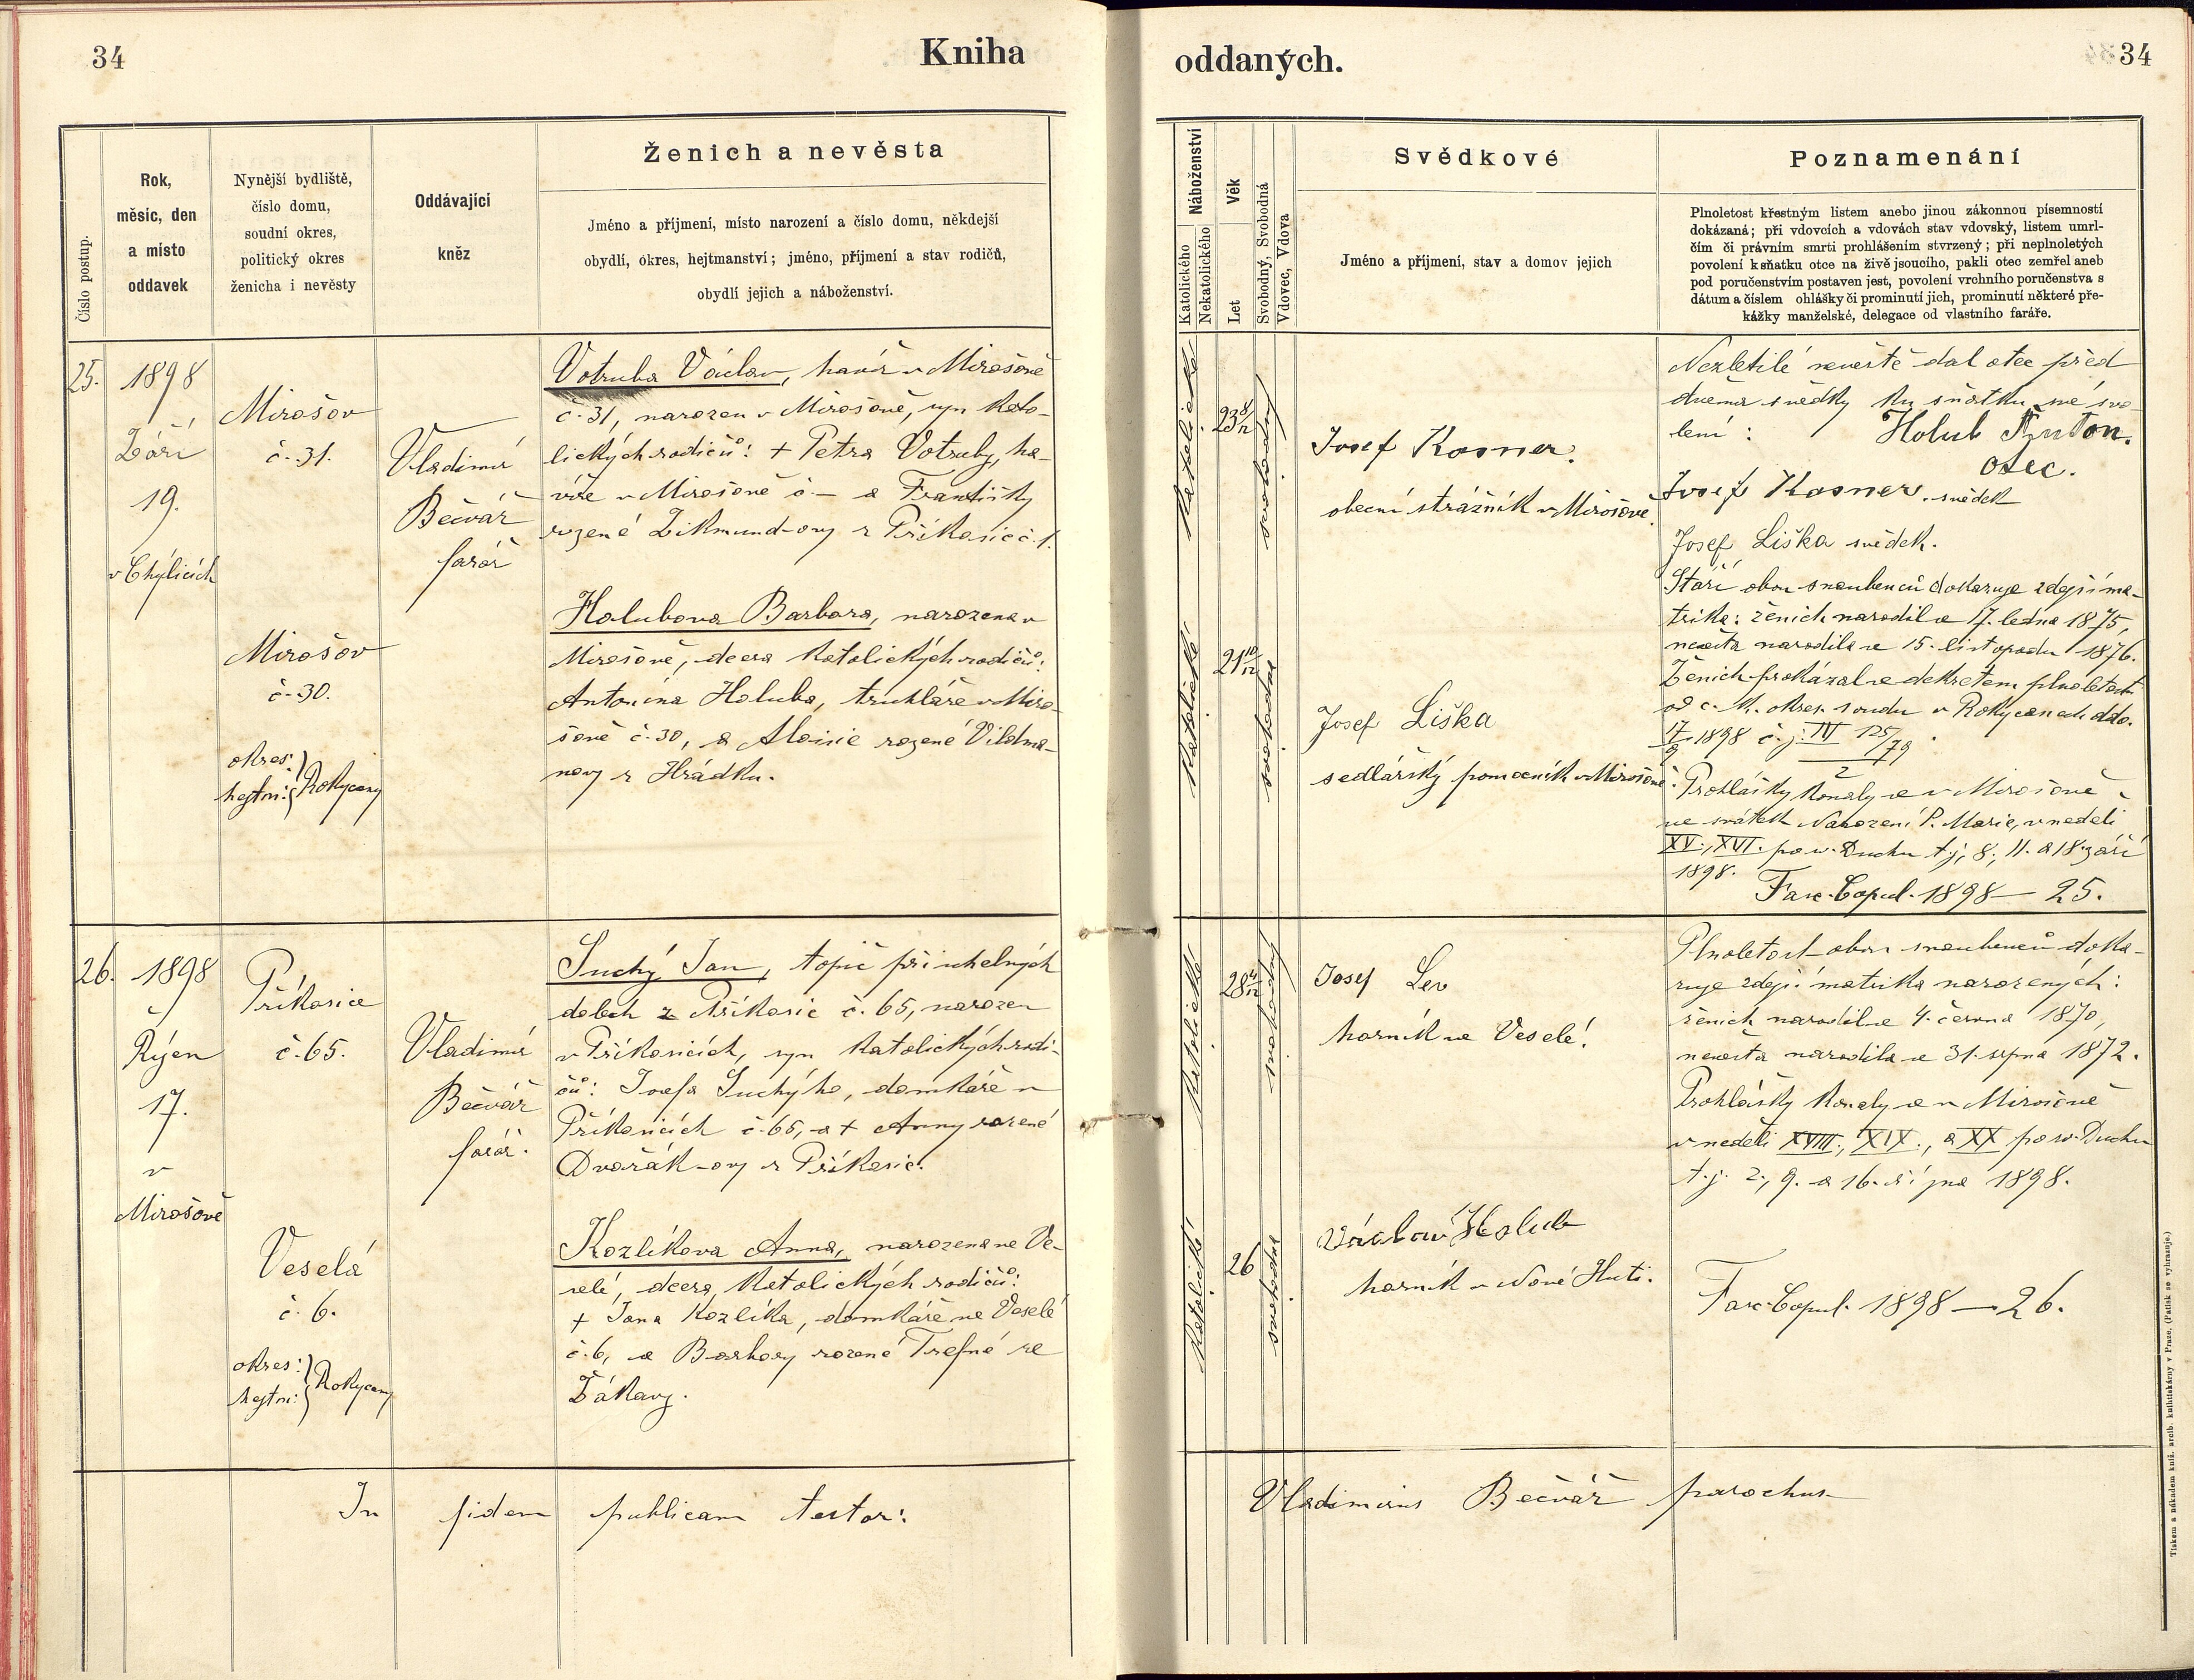 34
Kniha
oddaných.
34
Číslo postup.
Rok,
měsíc, den
a místo
oddavek
Nynější bydliště,
číslo domu,
soudní okres,
politický okres
ženicha i nevěsty
Oddávající
kněz
Ženich a nevěsta
Jméno a příjmení, místo narození a číslo domu, někdejší
obydlí, okres, hejtmanství; jméno, příjmení a stav rodičů,
obydlí jejich a náboženství.
Náboženství
Katolického
Nekatolického
Věk
Let
Svobodný, Svobodná
Vdovec, Vdova
Svědkové
Jméno a příjmení, stav a domov jejich
Poznamenání
Plnoletost křestným listem anebo jinou zákonnou písemností
dokázaná; při vdovcích a vdovách stav vdovský, listem umrl-
čím či právním smrti prohlášením stvrzený; při neplnoletých
povolení k sňatku otce na živě jsoucího, pakli otec zemřel aneb
pod poručenstvím postaven jest, povolení vrchního poručenstva s
dátum a číslem ohlášky či prominutí jich, prominutí některé pře-
kážky manželské, delegace od vlastního faráře.
25.
1898
Září
19.
v Chýlicích
Mirošov
č. 31.
Mirošov
č. 30.
okres:
hejtm: Rokycany
Vladimír
Bečvář
farář
Votruba Václav, havíř v Mirošově
č. 31, narozen v Mirošově, syn kato-
lických rodičů: + Petra Votruby, ha-
víře v Mirošově č. – a Františky
rozené Zikmund-ovy z Příkosic č. 1.
Holubova Barbora, narozena v
Mirošově, dcera katolických rodičů:
Antonína Holuba, truhláře v Miro-
šově č. 30, a Aloisie rozené Vildma-
novy z Hrádku.
katolické
23 8/12
svobodný
katolické
21 10/12
svobodná
Josef Kosner.
obecní strážník v Mirošově.
Josef Liška
sedlářský pomocník v Mirošově.
Nezletilé nevěstě dal otec před
dvěma svědky ku sňatku své svo-
lení: Holub Anton.
otec.
Josef Kosner. svědek
Josef Liška svědek.
Stáří obou snoubenců dokazuje zdejší ma-
trika: ženich narodil se 17. ledna 1875,
nevěsta narodila se 15. listopadu 1876.
Ženich prokázal se dekretem plnoletosti
od c. k. okres. soudu v Rokycanech ddo.
17/9 1898 č. j. IV 125/79
2
Prohlášky konaly se v Mirošově
ve svátek Narození P. Marie, v neděli
XV., XVI. po sv. Duchu t. j. 8., 11. a 18. září
1898.
Fasc. Copul. 1898 — 25.
26.
1898
Říjen
17.
v
Mirošově
Příkosice
č. 65.
Veselá
č. 6.
okres:
hejtm: Rokycany
Vladimír
Bečvář
farář.
Suchý Jan, topič při uhelných
dolech z Příkosic č. 65, narozen
v Příkosicích, syn katolických rodi-
čů: Josefa Suchýho, domkáře v
Příkosicích č. 65, a + Anny rozené
Dvořák-ovy z Příkosic.
Kozlíkova Anna, narozena ve Ve-
selé, dcera katolických rodičů:
+ Jana Kozlíka, domkáře ve Veselé
č. 6, a Barbory rozené Trefné ze
Žákavy.
katolické
28 4/12
svobodný
katolické
26
svobodná
Josef Lev
horník ve Veselé.
Václav Holub
horník v Nové Huti.
Plnoletost obou snoubenců doka-
zuje zdejší matrika narozených:
ženich narodil se 4. června 1870,
nevěsta narodila se 31. srpna 1872.
Prohlášky konaly se v Mirošově
v neděli XVIII., XIX., a XX po sv. Duchu
t. j. 2., 9. a 16. října 1898.
Fasc. Copul. 1898 — 26.
In fidem publicam testor:
Vladimirus Bečvář parochus
Tiskem a nákladem kníž. arcib. knihtiskárny v Praze. (Patisk se vyhrazuje.)